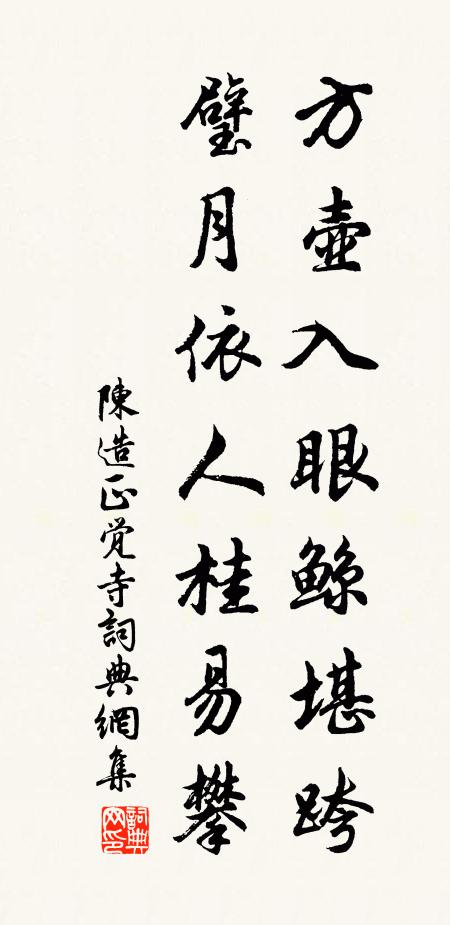 方壺入眼鯨堪跨
璧月依人桂易攀
陳造正覚寺詞典網集
詞典
网印